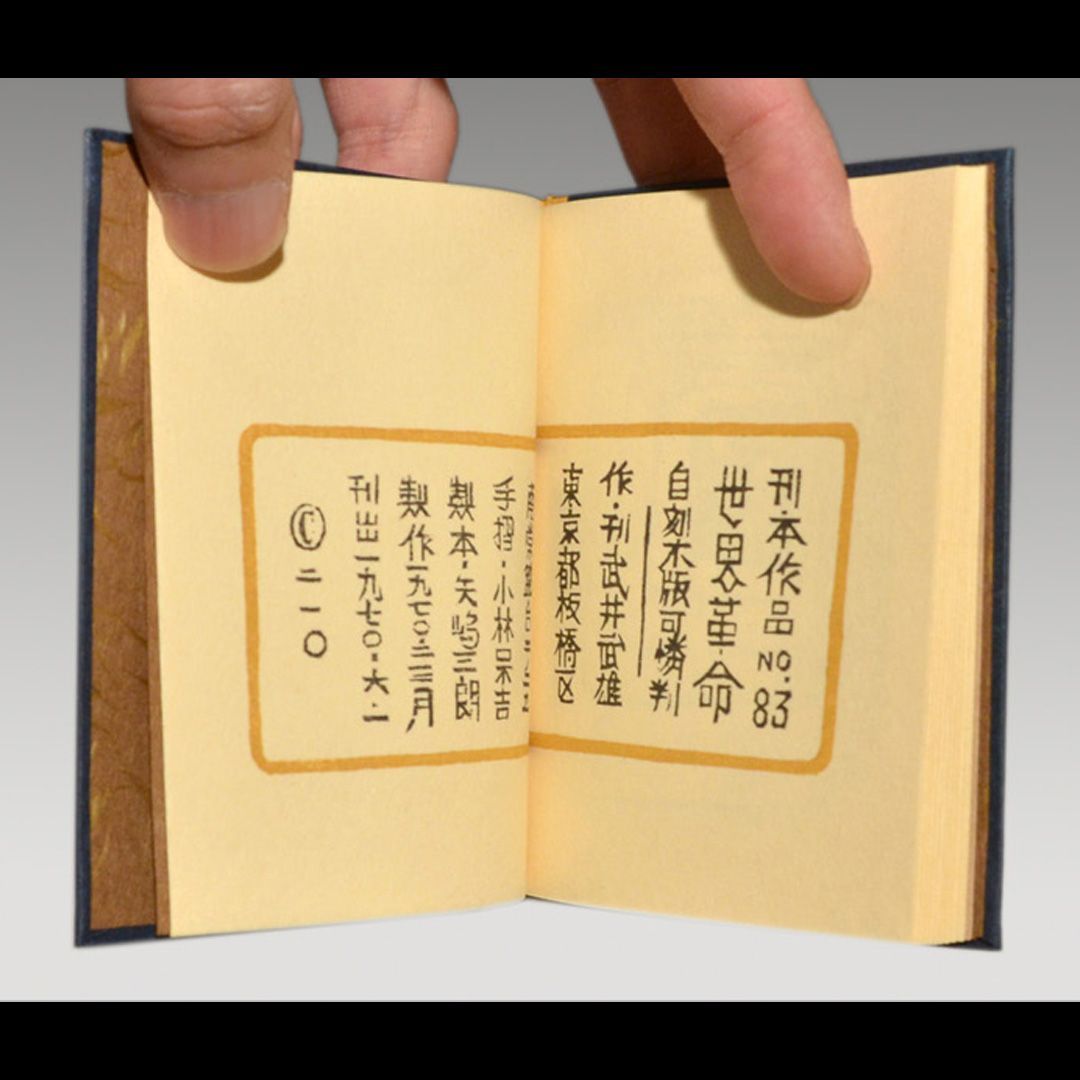 刊・本作品 NO. 83
世界革命
自刻木版可憐判
作・刊武井武雄
東京都板橋区
手摺・小林呆吉
製本・矢嶋三朗
製作一九七〇・二三月
刊出一九七〇・六・一
© 二一〇